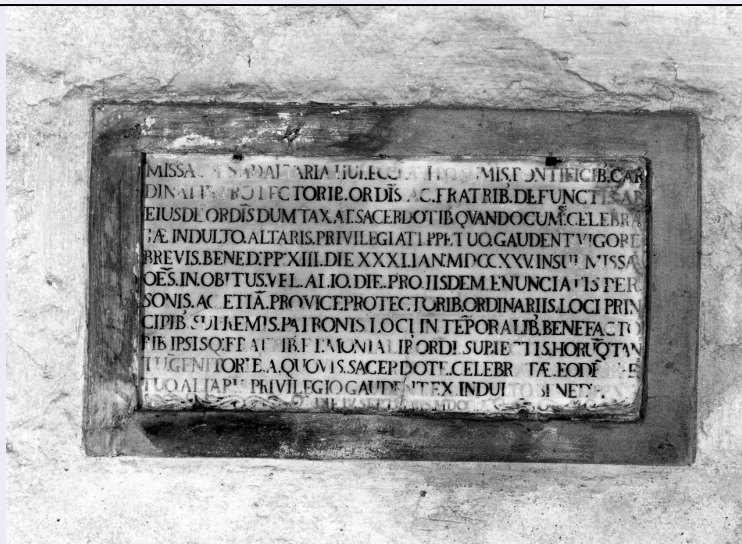 MISSA AD ALTARIA HUI. ECCL. PONTIFICIB. CAR
DINALI PROTECTORIB. ORDIS AC. FRATRIB. DEFUNCTIS AB
EIUSDE ORDIS DUMTAXAT. SACERDOTIB QVANDOCUM. CELEBRA
TÆ INDULTO. ALTARIS. PRIVILEGIATI. PPETUO. GAUDENT VIGORE
BREVIS. BENED. PP. XIII. DIE XXXI. IAN. MDCCXXV. INSUP. MISSÆ
OES. IN. OBITUS. VEL. ALIO. DIE. PRO. IISDEM. ENUNCIATIS PER
SONIS. AC ETIÃ. PROVICEPROTECTORIB. ORDINARIIS. LOCI PRIN
CIPIB. SUPREMIS. PATRONIS LOCI IN TEPORALIB. BENEFACTO
RIB. IPSISQ. FRATRIB. ORDI. SUBIECTIS. HORUQ. TAN
GENITORIB. A. QUOVIS. SACERDOTE. CELEBRATÆ. EODE
TUO ALTARIS PRIVILEGIO GAUDENT EX INDULTO BENED
DIE SEPTEMBRIS MDCC